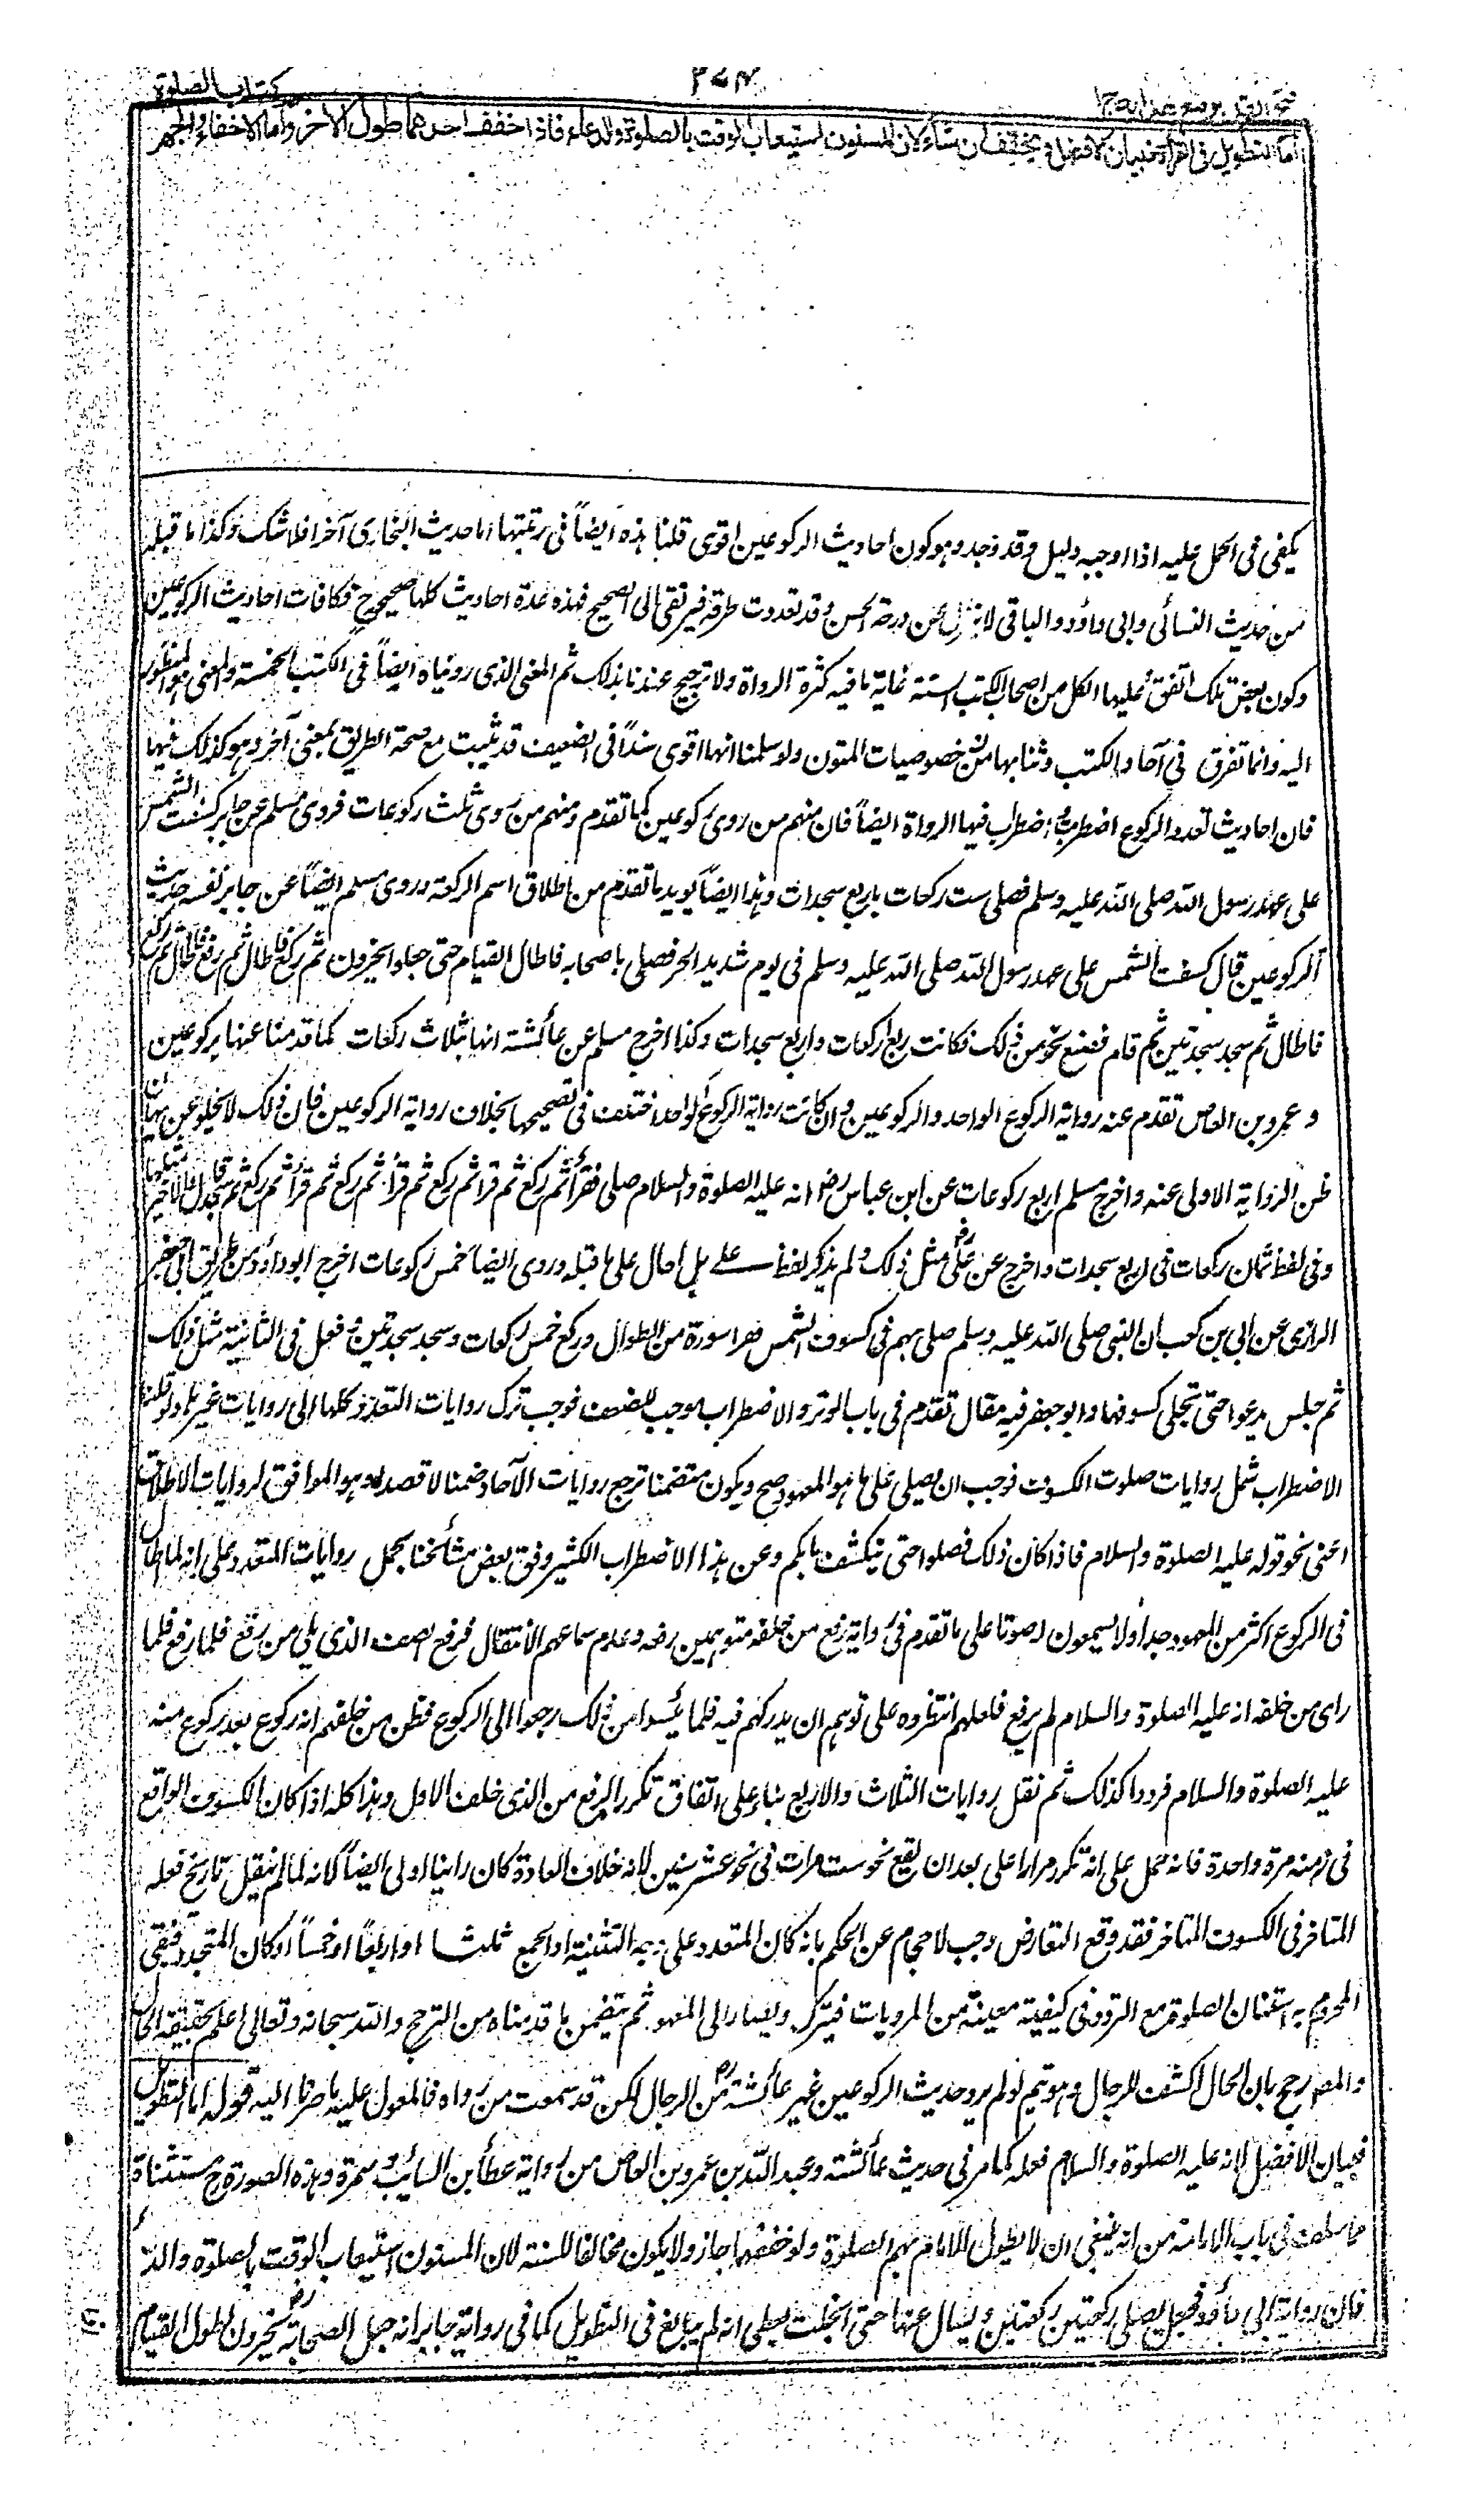 فتح القدير مع هدايه ج١
٢٧٤
كتاب الصلوة
اما التطويل فى القراءة فبيان الافضل ويخفف ان شاء لان المسنون استيعاب الوقت بالصلوة والدعاء فاذا خفف احدهما طول الاخر واما الاخفاء والجهر
يكفى فى الحمل عليه اذا اوجبه دليل وقد وجد وهو كون احاديث الركوعين اقوى قلنا هذه ايضاً فى رتبتها اما حديث البخارى آخرا فلا شك وكذا ما قبله
من حديث النسائى وابى داؤد والباقى لا ينزل عن درجة الحسن وقد تعددت طرقه فيرتقى الى الصحيح فهذه عدة احاديث كلها صحيحة ح فكافات احاديث الركوعين
وكون بعض تلك اتفق عليها الكل من اصحاب الكتب الستة غاية ما فيه كثرة الرواة ولا ترجيح عندنا بذلك ثم المعنى الذى رويناه ايضاً فى الكتب الخمسة والمعنى هو المنظور
اليه وانما تفرق فى آحاد الكتب وثنائها من خصوصيات المتون ولو سلمنا انها اقوى سنداً فالضعيف قد يثبت مع صحة الطريق بمعنى آخر وهو كذلك فيها
فان احاديث تعدد الركوع اضطربت واضطرب فيها الرواة ايضاً فان منهم من روى ركوعين كما تقدم ومنهم من روى ثلث ركوعات فروى مسلم عن جابر كسفت الشمس
على عهد رسول الله صلى الله عليه وسلم فصلى ست ركعات باربع سجدات وهذا ايضاً يويد ما تقدم من اطلاق اسم الركعة وروى مسلم ايضاً عن جابر نفسه حديث
الركوعين قال كسفت الشمس على عهد رسول الله صلى الله عليه وسلم فى يوم شديد الحر فصلى باصحابه فاطال القيام حتى جعلوا يخرون ثم ركع فاطال ثم رفع فاطال ثم ركع
فاطال ثم سجد سجدتين ثم قام فصنع نحو من ذلك فكانت اربع ركعات واربع سجدات وكذا اخرج مسلم عن عائشة انها بثلاث ركعات كما قدمنا عنها بركوعين
و عمرو بن العاص تقدم عنه رواية الركوع الواحد والركوعين وان كانت رواية الركوع الواحد اختلف فى تصحيحها بخلاف رواية الركوعين فان ذلك لا يخلو عن ايهان
ظن الرواية الاولى عنه واخرج مسلم اربع ركوعات عن ابن عباس رض انه عليه الصلوة والسلام صلى فقرأ ثم ركع ثم قرأ ثم ركع ثم قرأ ثم ركع ثم قرأ ثم ركع ثم سجد قال والاخرى مثلها
وفى لفظ ثمان ركعات فى اربع سجدات واخرج عن على رض مثل ذلك ولم يذكر لفظ على بل احال على ما قبله وروى ايضاً خمس ركوعات اخرج ابو داؤد من طريق ابى جعفر
الرازى عن ابى بن كعب ان النبى صلى الله عليه وسلم صلى بهم فى كسوف الشمس فقرا سورة من الطوال وركع خمس ركعات وسجد سجدتين وفعل فى الثانية مثل ذلك
ثم جلس يدعوا حتى تجلى كسوفها وابو جعفر فيه مقال تقدم فى باب الوتر والاضطراب موجب للضعف فوجب ترك روايات التعدد كلها الى روايات غيرها ولو قلنا
الاضطراب شمل روايات صلوت الكسوف فوجب ان يصلى على ما هو المعهود صح ويكون متضمنا ترجيح روايات الآحاد ضمنا لا قصدا وهو الموافق لروايات الاطلاق
اعنى نحو قوله عليه الصلوة والسلام فاذا كان ذلك فصلوا حتى ينكشف ما بكم وعن هذا الاضطراب الكثير وفق بعض مشائخنا بحمل روايات التعدد على انه لما اطال
فى الركوع اكثر من المعهود جدا ولا يسمعون له صوتا على ما تقدم فى رواية رفع من خلفه متوهمين رفعه وعدم سماعهم الانتقال فرفع الصف الذى يلى من رفع فلما رفع فلما
راى من خلفه انه عليه الصلوة والسلام لم يرفع فلعلهم انتظروه على توهم ان يدركهم فيه فلما يئسوا من ذلك رجعوا الى الركوع فظن من خلفهم انه ركوع بعد ركوع منه
عليه الصلوة والسلام فرووا كذلك ثم نقل روايات الثلاث والاربع بناء على اتفاق تكرر الرفع من الذى خلف الاول وهذا كله اذا كان الكسوف الواقع
فى زمنه مرة واحدة فانه حمل على انه تكرر مرارا على بعد ان يقع نحو ست مرات فى نحو عشر سنين لانه خلاف العادة كان راينا اولى ايضاً لانه لما لم ينقل تاريخ فعله
المتاخر فى الكسوف المتاخر فقد وقع التعارض وجب الاحجام عن الحكم بانه كان المتعدد على وجه التثنية او الجمع ثلثا او اربعاً او خمساً او كان المتحد فبقى
المجزوم به استنان الصلوة مع التردد فى كيفية معينة من المرويات فيترك ويصار الى المعهود ثم يتضمن ما قدمناه من الترجيح والله سبحانه وتعالى اعلم بحقيقة الحال
والمصـ رجح بان الحال اكشف للرجال وهو يتم لو لم يرو حديث الركوعين غير عائشة رض من الرجال لكن قد سمعت من رواه فالمعول عليه ما صرنا اليه قوله اما التطويل
فبيان الافضل لانه عليه الصلوة والسلام فعله كما مر فى حديث عائشة وعبد الله بن عمرو بن العاص من رواية عطأ بن السائب وسمرة وهذه الصورة ح مستثناة
مما سلف فى باب الامامة من انه ينبغى ان لا يطول الامام بهم الصلوة ولو خففها جاز ولا يكون مخالفا للسنة لان المسنون استيعاب الوقت بالصلوة والدعاء
فان رواية ابى داؤد فجعل يصلى ركعتين ركعتين ويسال عنها حتى انجلت يعطى انه لم يبالغ فى التطويل كما فى رواية جابر انه جعل الصحابة رض يخرون لطول القيام